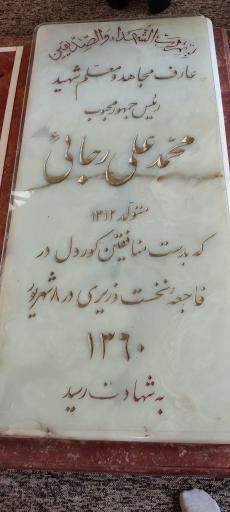 رب الشهداء والصدیقین
عارف مجاهد و معلم شهید
رئیس جمهور محبوب
محمد علی رجائی
متولد ۱۳۱۲
که بدست منافقین کوردل در
فاجعهٔ نخست وزیری در ۸ شهریور
۱۳۶۰
به شهادت رسید